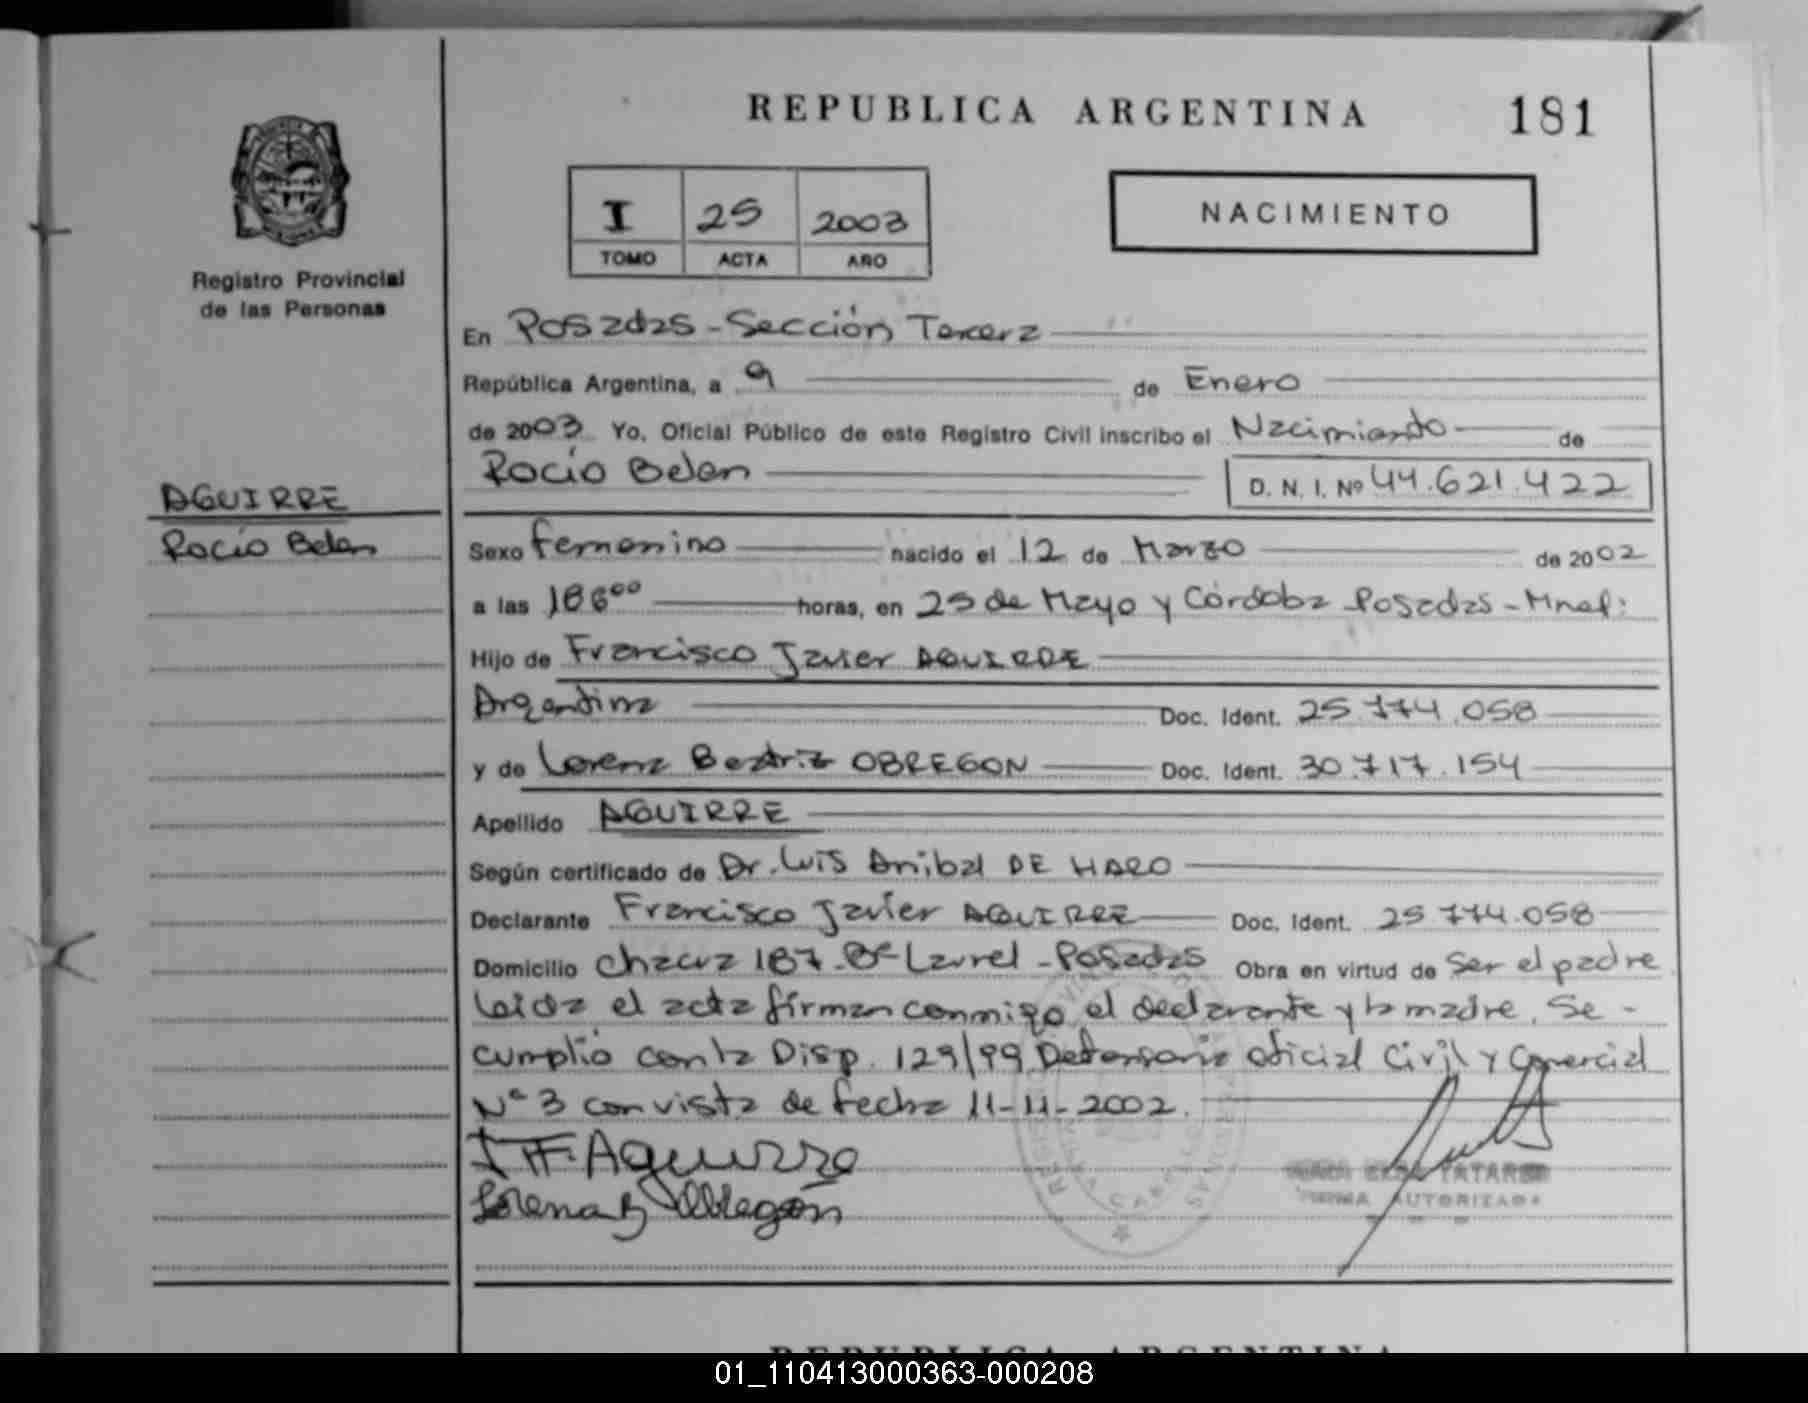 REPUBLICA ARGENTINA
181
I 25 2003
TOMO ACTA AÑO
NACIMIENTO
Registro Provincial
de las Personas
AGUIRRE
Rocío Belen
En Posadas - Sección Tercera
República Argentina, a 9 de Enero
de 2003 Yo, Oficial Público de este Registro Civil inscribo el Nacimiento de
Rocío Belen D. N. I. Nº 44.621.422
Sexo femenino nacido el 12 de Marzo de 2002
a las horas, en 25 de Mayo y Córdoba Posadas - Mnes:
Hijo de Francisco Javier AGUIRRE
Argentina Doc. Ident. 25.774.058
y de Lorena Beatriz OBREGON Doc. Ident. 30.717.154
Apellido AGUIRRE
Según certificado de Dr. Luis Anibal DE HARO
Declarante Francisco Javier AGUIRRE Doc. Ident. 25.774.058
Domicilio 187 Bº Laurel - Posadas Obra en virtud de ser el padre
Leida el acta firman conmigo el declarante y la madre. Se -
cumplió con la Disp. 129/99 Defensoria oficial Civil y Comercial
Nº 3 con vista de fecha 11-11-2002.
Aguirre
Lorena B Obregón
TATAREN
FIRMA AUTORIZADA
REPUBLICA ARGENTINA
01_110413000363-000208